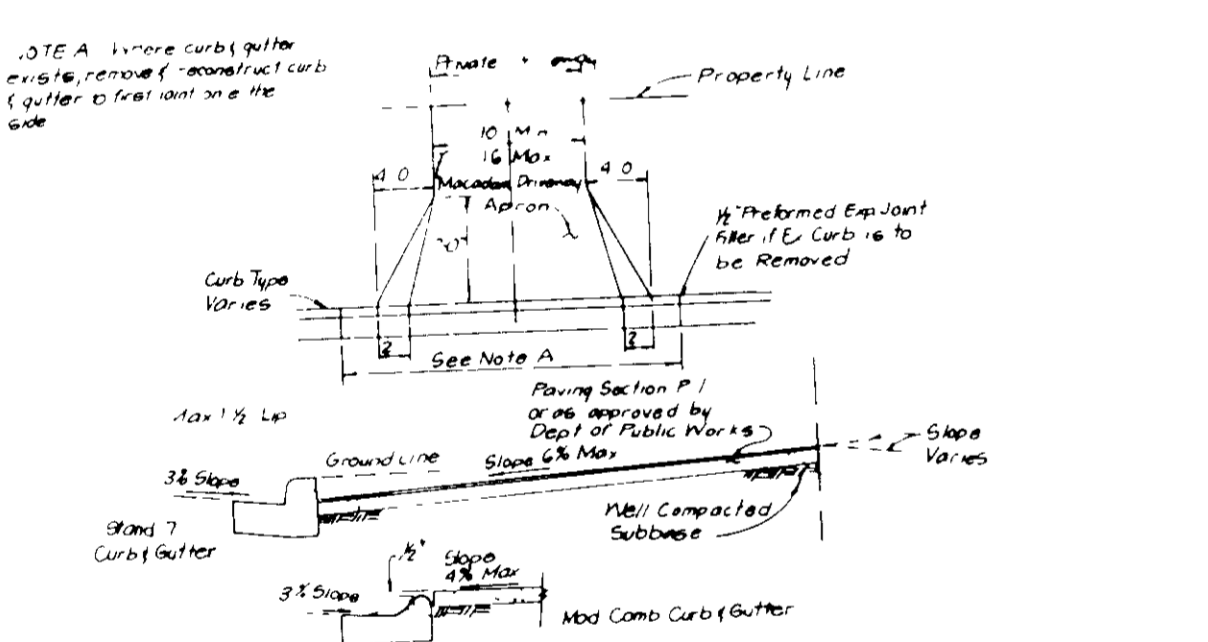 NOTE A Where curb & gutter
exists, remove & reconstruct curb
& gutter to first joint on e the
side
Private
Property Line
10 Min
16 Max
4 0
4 0
Macadam Driveway
Apron
"D"
1/2" Preformed Exp Joint
Filler if Curb is to
be Removed
Curb Type
Varies
2
2
See Note A
Paving Section P 1
or as approved by
Dept of Public Works
Max 1 1/2 Lip
Slope
Varies
Ground Line
Slope 6% Max
3% Slope
Well Compacted
Subbase
Stand 7
Curb & Gutter
1/2"
Slope
4% Max
3% Slope
Mod Comb Curb & Gutter